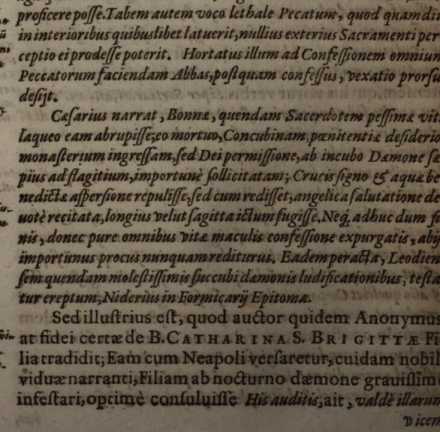 proficere posse. Tabem autem voco lethale Pecatum, quod quamdi
in interioribus quibuslibet latuerit, nullius exterius Sacramenti per
ceptio ei prodesse poterit. Hortatus illum ad Confessionem omnium
Peccatorum faciendam Abbas, postquam confessus, vexatio prorsu
desijt.
Cæsarius narrat, Bonnæ, quendam Sacerdotem pessimæ vit
laqueo eam abrupisse; eo mortuo, Concubinam, pœnitentiæ desiderio
monasterium ingressam, sed Dei permissione, ab incubo Dæmone sæ
pius ad flagitium, importunè sollicitatam; Crucis signo & aquæ be
nedictæ aspersione repulisse, sed cum redisset, angelica salutatione de
uotè recitata, longius velut sagitta ictum fugisse. Neq, adhuc dum fi
nis, donec pure omnibus vitæ maculis confessione expurgatis, abij
importunus procus nunquam rediturus. Eadem peracta, Leodien
sem quendam molestissimis succubi dæmonis ludificationibus, testa
tur ereptum, Niderius in Formicarij Epitoma.
Sed illustrius est, quod auctor quidem Anonymus
at fidei certæ de B. CATHARINA S. BRIGITTÆ Fi
lia tradidit; Eam cum Neapoli versaretur, cuidam nobil
viduæ narranti, Filiam ab nocturno dæmone grauissim
infestari, optimè consuluisse His auditis, ait, valdè illarum
vicem